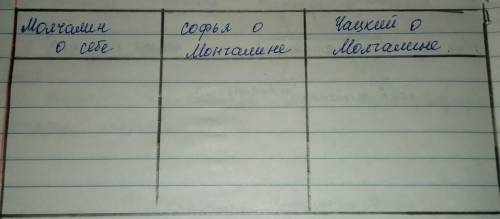 Молчалин
о себе
софья о
Мончалине
Чацкий о
Молчалине.